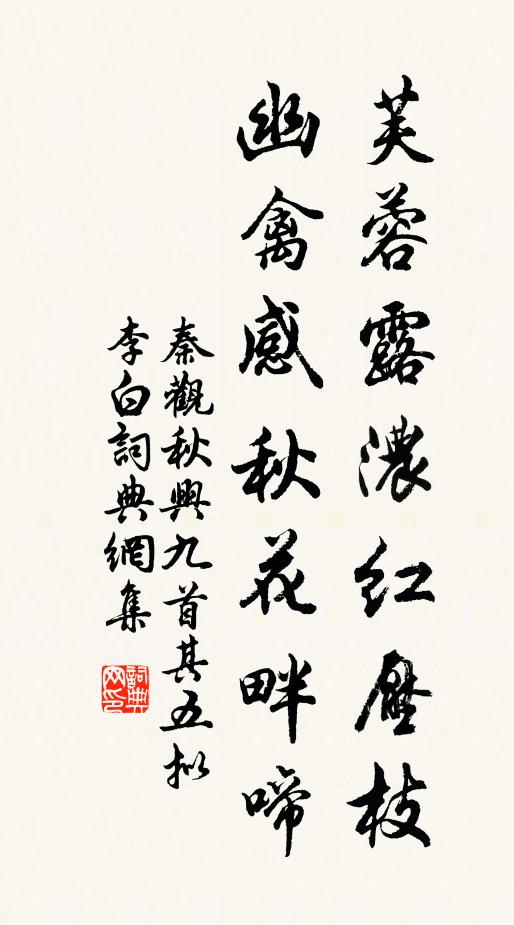 芙蓉露濃红壓枝
幽禽感秋花畔啼
秦觀秋興九首其五拟
李白詞典網集
詞典
网印